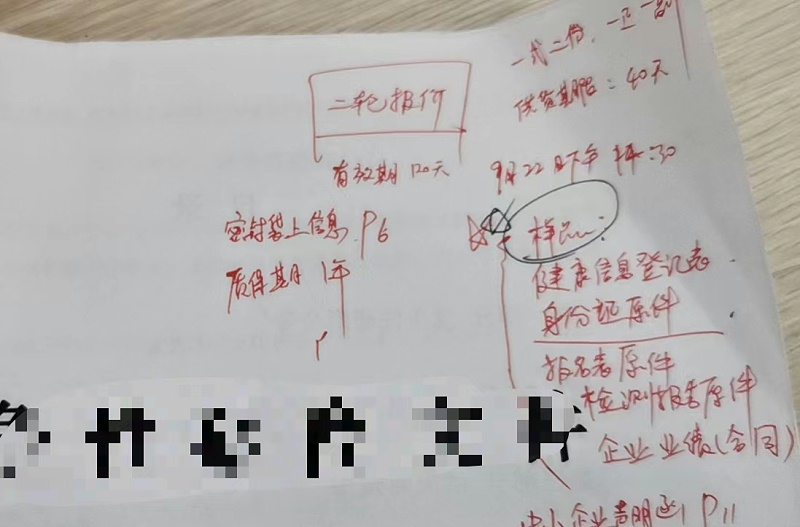 一式二份，一正一副
供货期限：40天
二轮报价
有效期 120天
9月22日下午 14:30
密封袋上信息 P6
质保期 1年
样品：
健康信息登记表
身份证原件
报名表原件
检测报告原件
企业业绩（合同）
中小企业声明函 P11